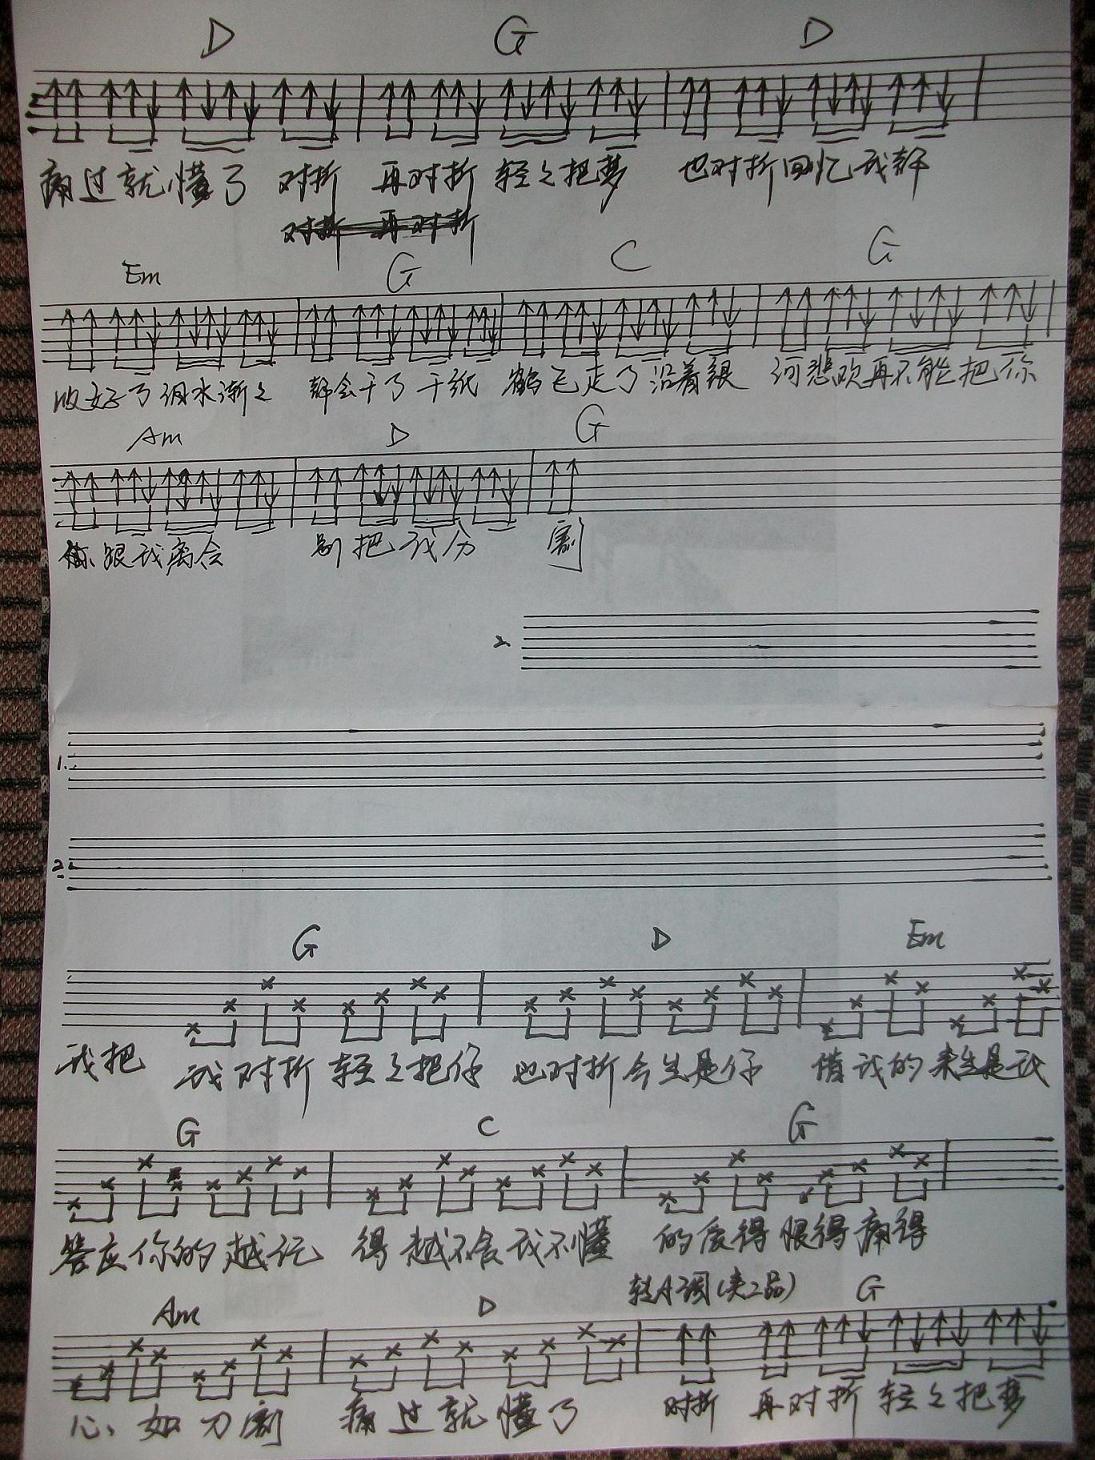 D G D
痛过就懂了 对折 再对折 轻々把梦 也对折回忆我都
对折 再对折
Em G C G
收好了泪水渐々 都会干了 千纸 鹤飞走了沿着银 河悲欢再不能把你
Am D G
你跟我离合 别把我分 割
2.
1.
2.
G D Em
我把 我对折 轻々把你 也对折今生是你 借我的来生是我
G C G
答应你的越记 得越不舍我不懂 的爱得恨得痛得
转A调(夹2品) G
Am D
心如刀割 痛过就懂了 对折 再对折 轻々把梦